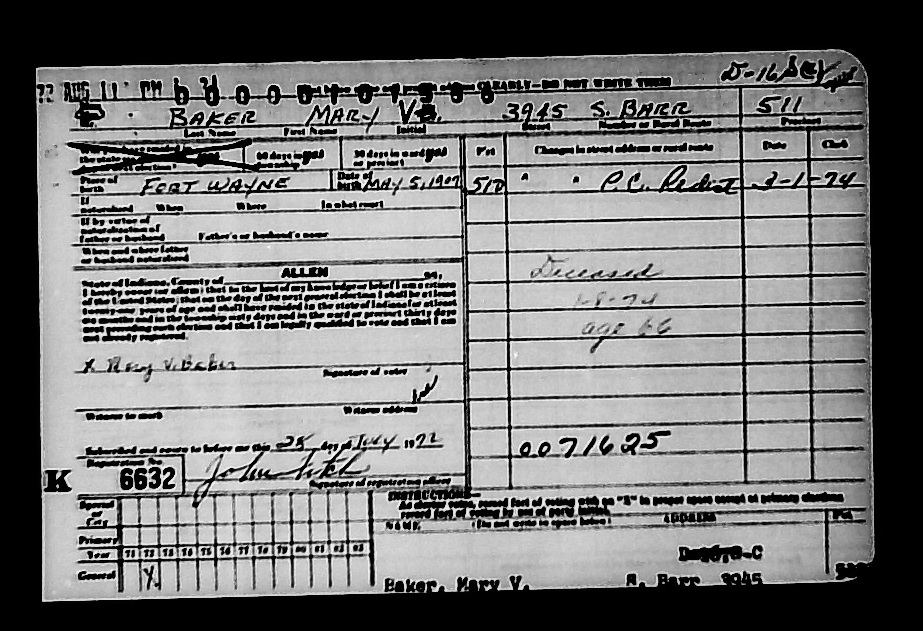 72 AUG 11 PM
CLEARLY—DO NOT WRITE THESE
BAKER MARY V. 3945 S. BARR 511
Last Name First Name Initial Street Number or Rural Route Precinct
60 days in township 30 days in ward or precinct Pct Changes in street address or rural route Date Clerk
Place of birth FORT WAYNE Date of birth MAY 5, 1907 510 " " P.C. 2-1-74
If naturalized When Where In what court
If by virtue of naturalization of father or husband Father's or husband's name
When and where father or husband naturalized
Deceased
1-8-74
age 66
State of Indiana, County of ALLEN, ss,
I hereby swear (or affirm) that to the best of my knowledge or belief I am a citizen
of the United States; that on the day of the next general election I shall be at least
twenty-one years of age and shall have resided in the state of Indiana for at least
six months and in the township sixty days and in the ward or precinct thirty days
next preceding such election and that I am legally qualified to vote and that I am
not already registered.
X Mary V. Baker
Signature of voter
Witness to mark Witness address
Subscribed and sworn to before me this 25 day of July 1972
0071625
Registration No
K 6632
Signature of registration officer
INSTRUCTIONS—
As shown votes, record fact of voting with an "X" in proper space except at primary elections
record fact of voting by use of party initial.
NAME (Do not write in space below) ADDRESS Pct
Special or City
Primary
Year 71 72 73 74 75 76 77 78 79 80 81 82 83
General X
Baker, Mary V. S. Barr 3945